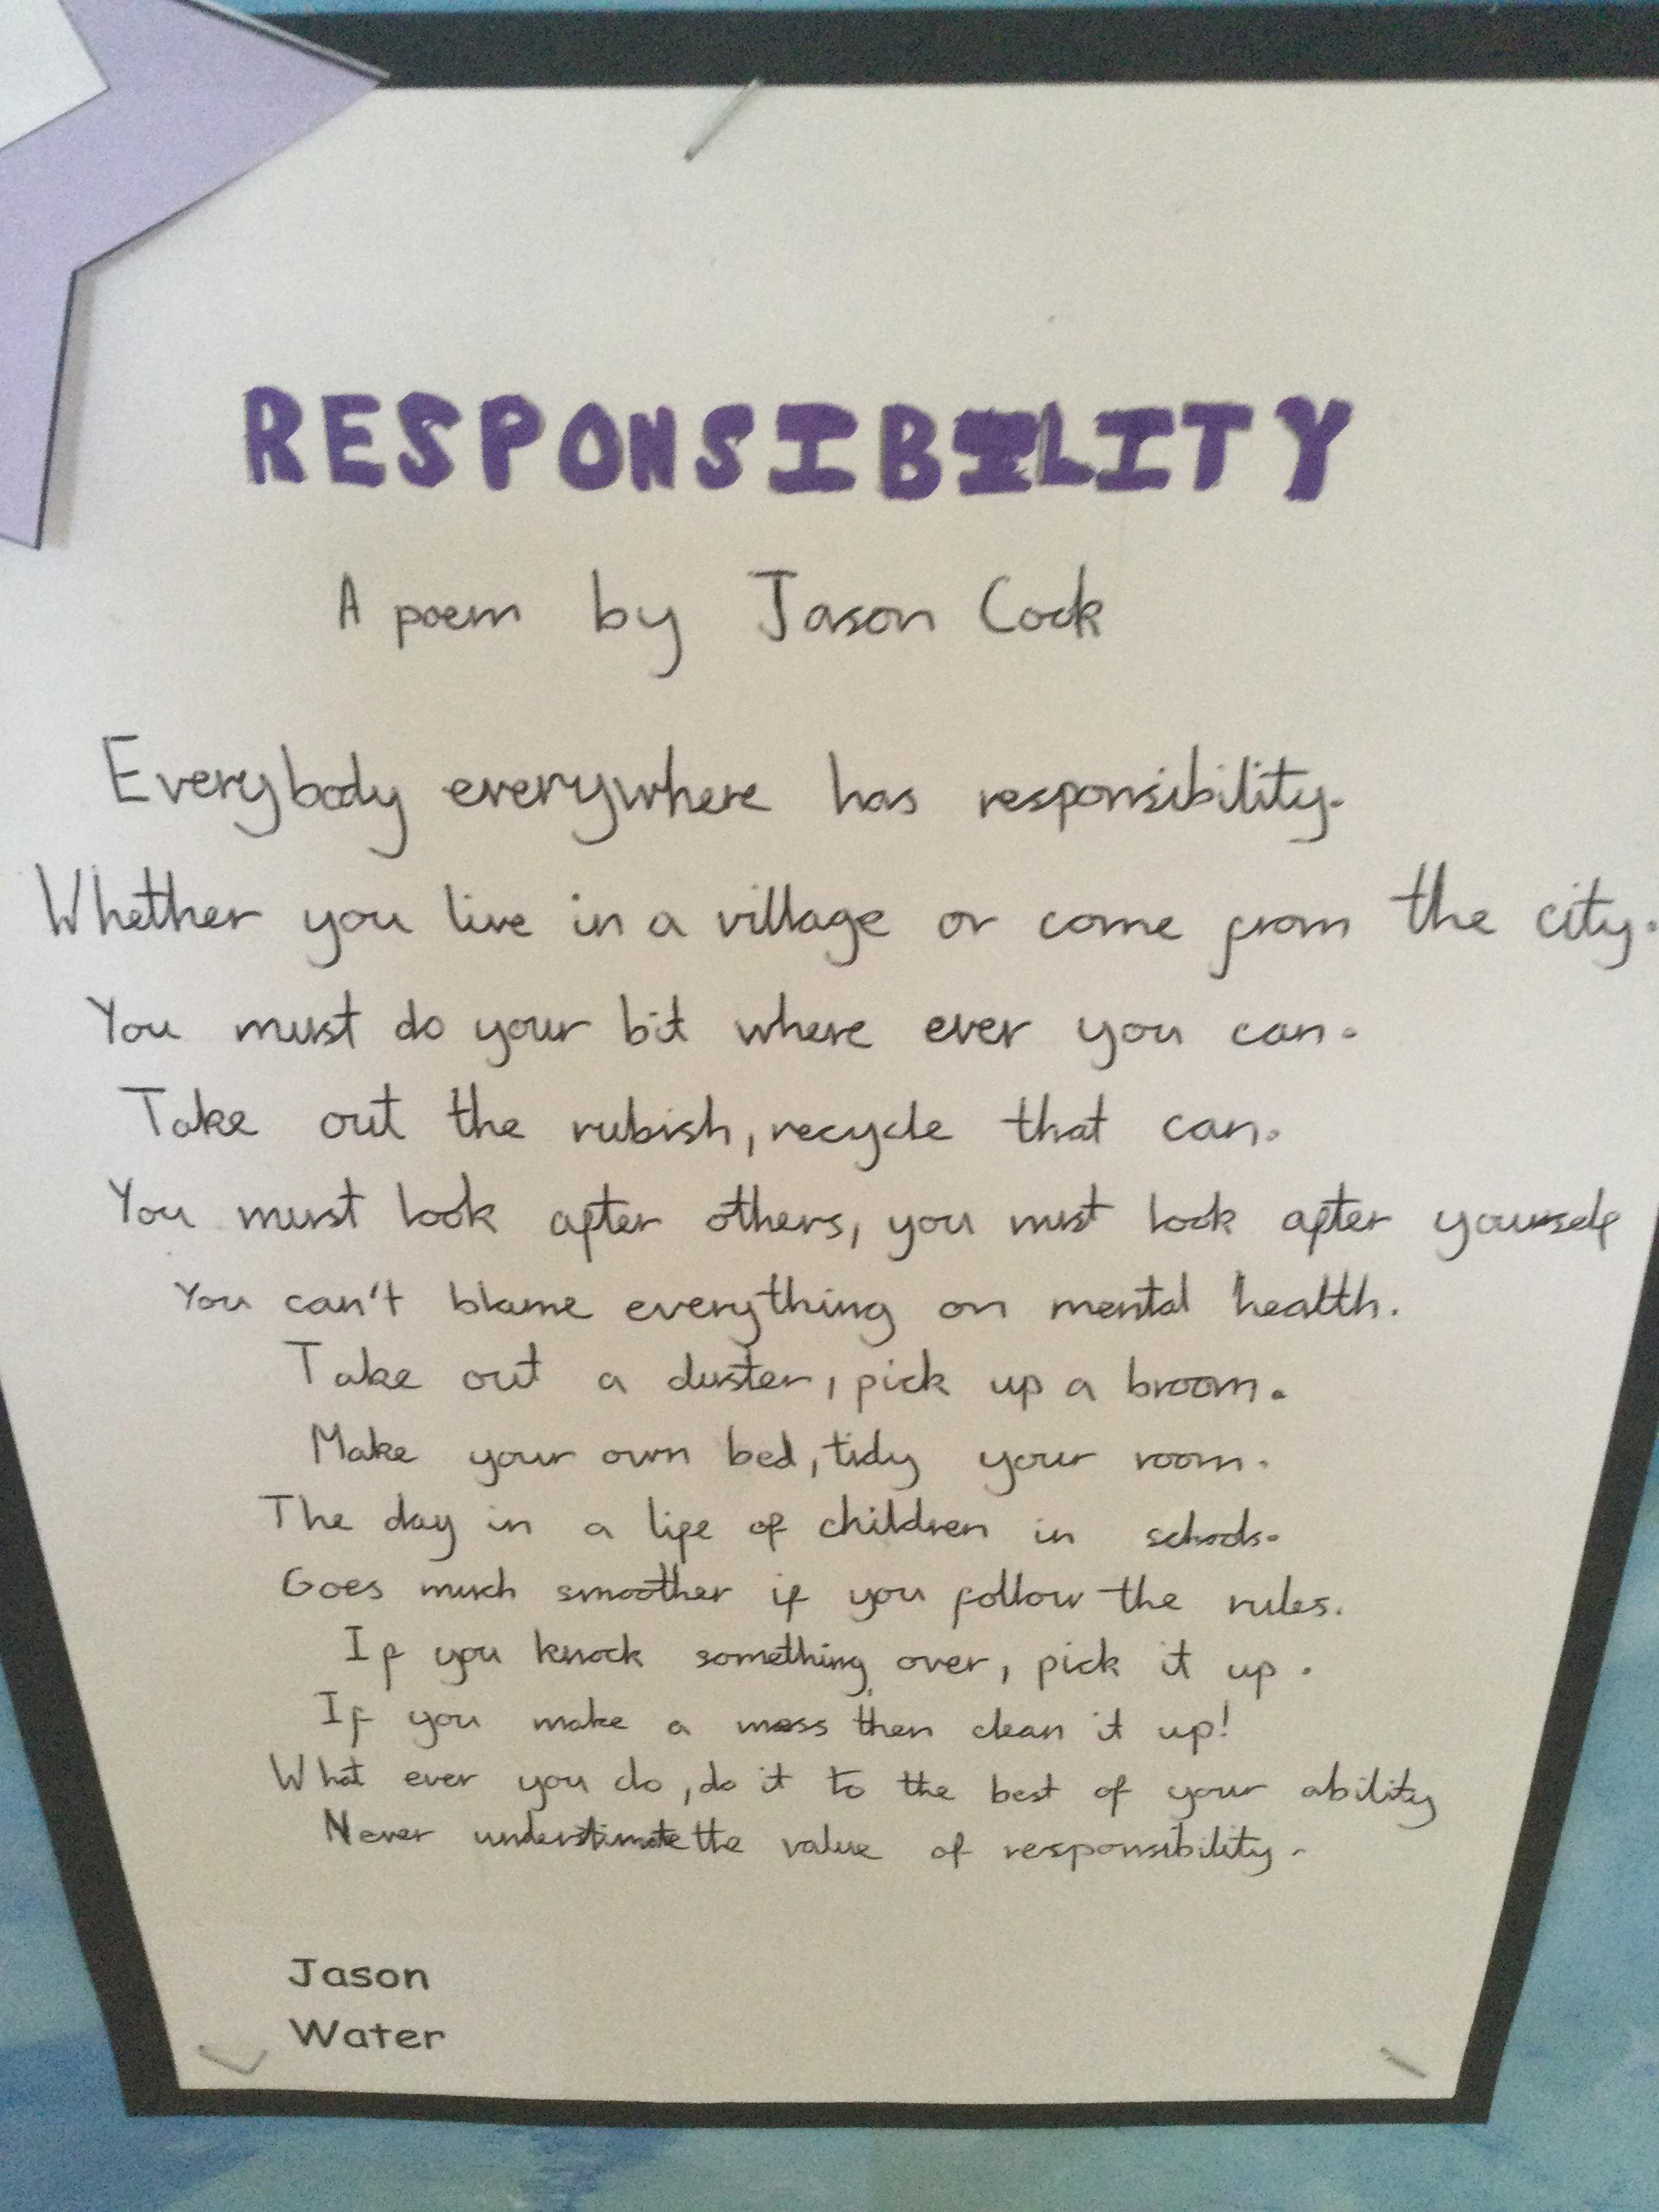 RESPONSIBILITY
A poem by Jason Cook
Everybody everywhere has responsibility.
Whether you live in a village or come from the city.
You must do your bit where ever you can.
Take out the rubish, recycle that can.
You must look after others, you must look after yourself
You can't blame everything on mental health.
Take out a duster, pick up a broom.
Make your own bed, tidy your room.
The day in a life of children in schools.
Goes much smoother if you follow the rules.
If you knock something over, pick it up.
If you make a mess then clean it up!
What ever you do, do it to the best of your ability
Never understimate the value of responsibility.
Jason
Water